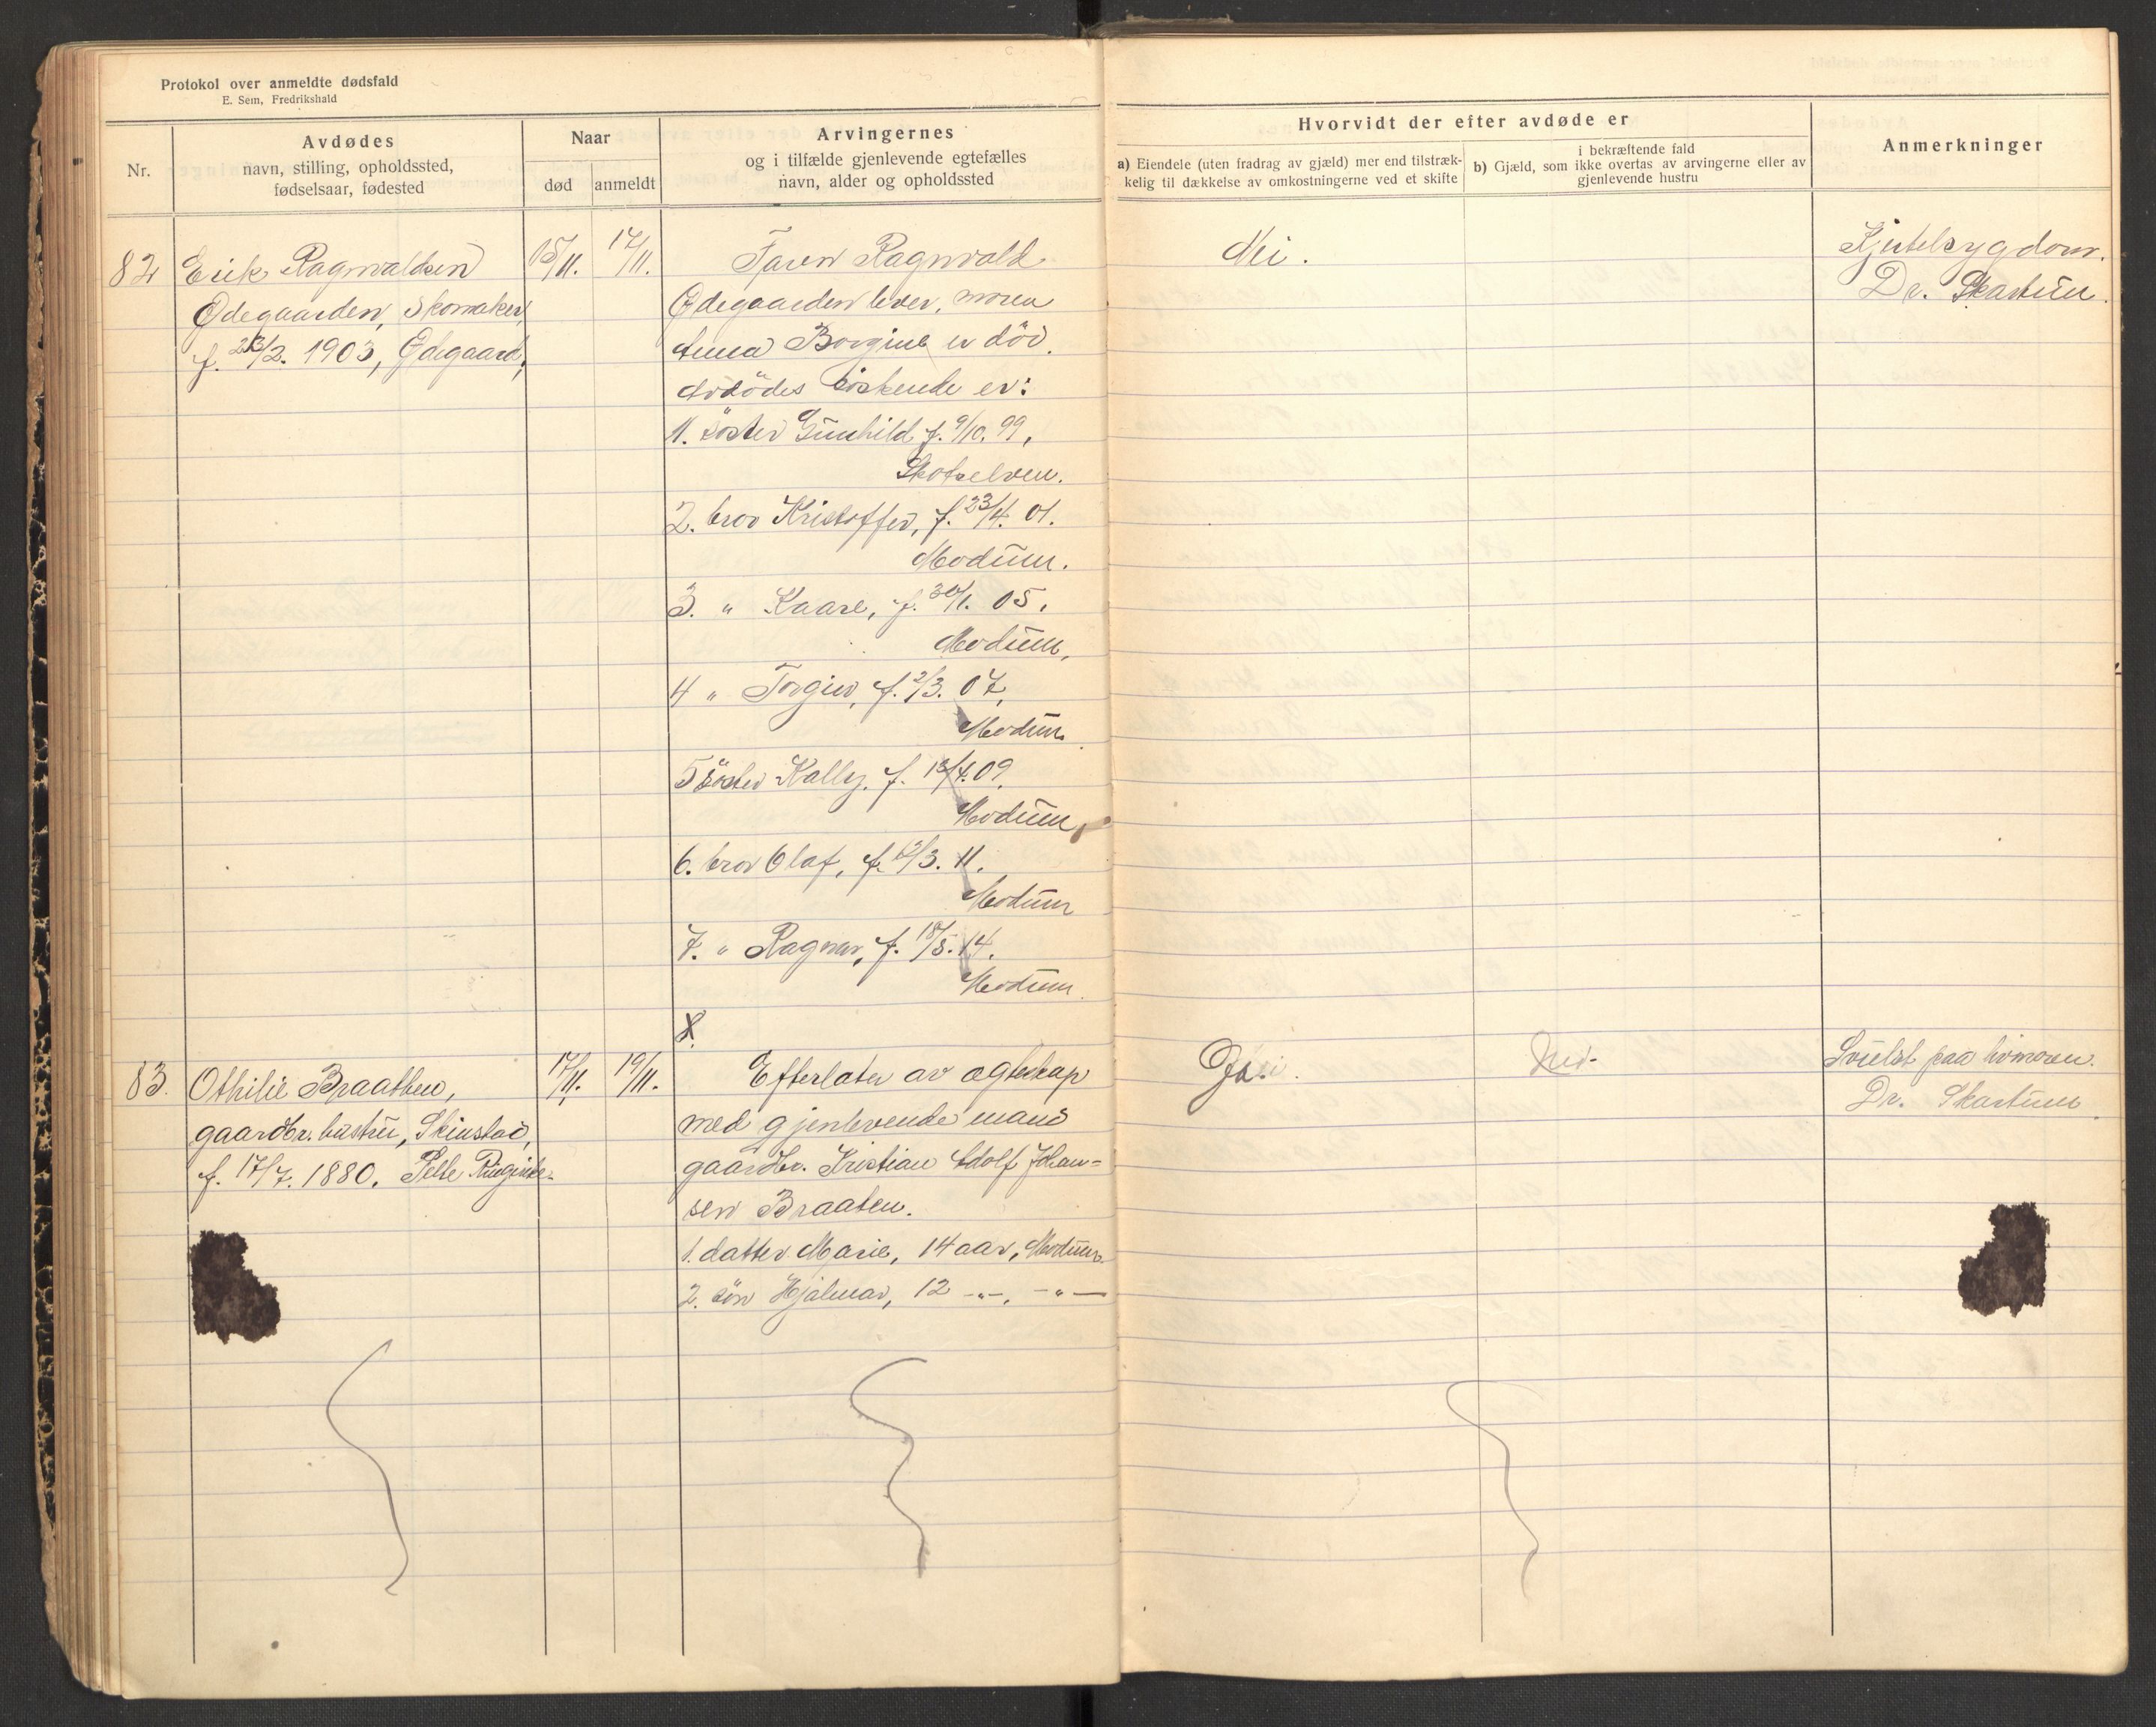 Protokol over anmeldte dødsfald
E. Sem, Fredrikshald
Nr.
Avdødes
navn, stilling, opholdssted,
fødselsaar, fødested
Naar
død
anmeldt
Arvingernes
og i tilfælde gjenlevende egtefælles
navn, alder og opholdssted
Hvorvidt der efter avdøde er
a) Eiendele (uten fradrag av gjæld) mer end tilstræk-
kelig til dækkelse av omkostningerne ved et skifte
i bekræftende fald
b) Gjæld, som ikke overtas av arvingerne eller av
gjenlevende hustru
Anmerkninger
82
Erik Ragnvaldsen
Ødegaarden, Skomaker,
f. 23/2. 1903, Ødegaard,
15/11.
17/11.
Faren Ragnvald
Ødegaarden lever, moren
Anna Borgine er död.
Avdödes söskende er:
1. söster Gunhild f. 9/10. 99,
Skotselven.
2. bror Kristoffer, f. 23/4. 01.
Modum.
3. " Kaare, f. 30/1. 05.
Modum.
4 " Torger, f. 2/3. 07,
Modum.
5 söster Kally. f. 13/4. 09.
Modum.
6. bror Olaf, f. /3. 11.
Modum
7. " Ragnar, f. 18/5. 14.
Modum.
X.
Nei.
Hjertesygdom.
Dr. Skartum.
83.
Othilie Braathen,
gaardbr. hustru, Skinstad,
f. 17/7. 1880. Pelle
17/11.
19/11.
Efterlater av ægteskap
med gjenlevende mand
gaardbr. Kristian Adolf Johan=
sen Braaten.
1. datter Marie, 14 aar, Modum.
2. sön Hjalmar, 12 -"-, -"-
Ja.
Nei.
Svulst paa livmoren.
Dr. Skartum.